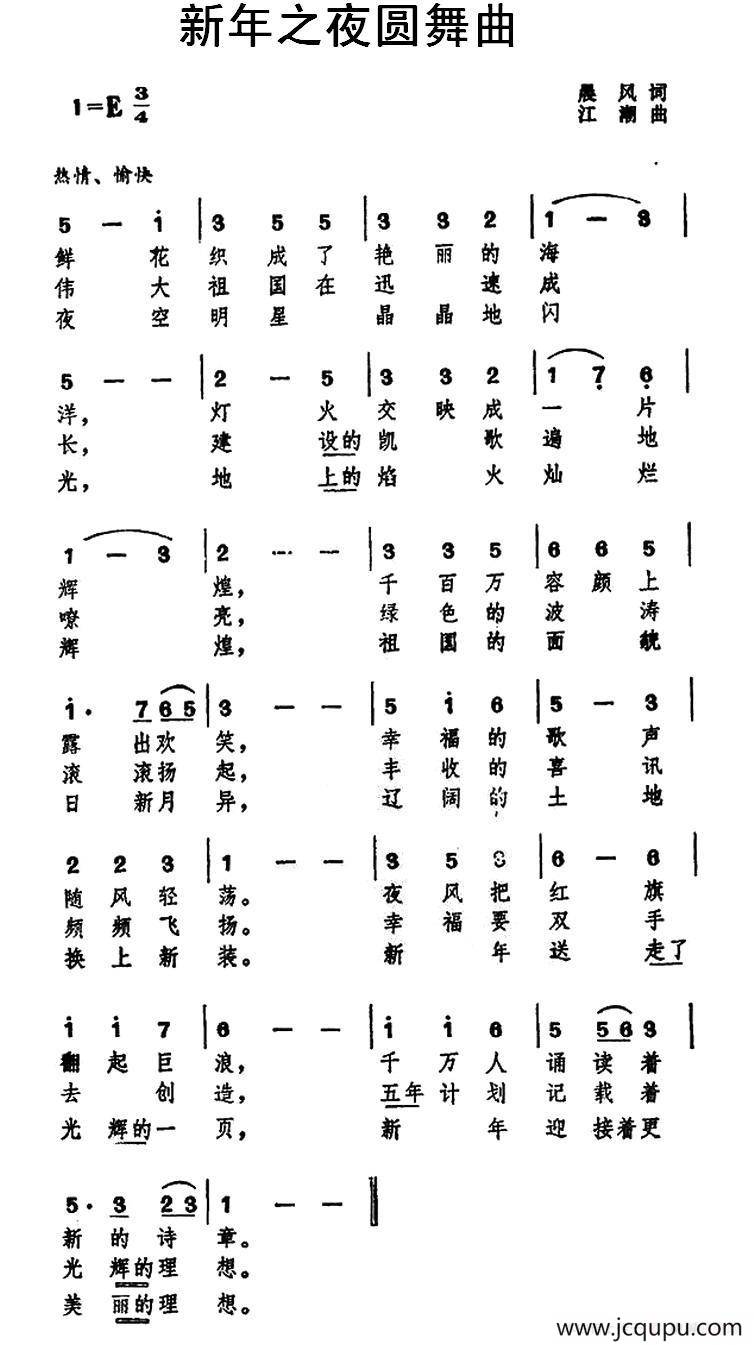 新年之夜圆舞曲
1=E 3/4
晨 风 词
江 潮 曲
热情、愉快
5 — i | 3 5 5 | 3 3 2 | 1 — 3 |
鲜 花 织 成 了 艳 丽 的 海
伟 大 祖 国 在 迅 速 成
夜 空 明 星 晶 晶 地 闪
5 — — | 2 — 5 | 3 3 2 | 1 7̣ 6̣ |
洋, 灯 火 交 映 成 一 片
长, 建 设的 凯 歌 遍 地
光, 地 上的 焰 火 灿 烂
1 — 3 | 2 — — | 3 3 5 | 6 6 5 |
辉 煌, 千 百 万 容 颜 上
嘹 亮, 绿 色 的 波 涛
辉 煌, 祖 国 的 面 貌
i· 7 6 5 | 3 — — | 5 i 6 | 5 — 3 |
露 出 欢 笑, 幸 福 的 歌 声
滚 滚 扬 起, 丰 收 的 喜 讯
日 新 月 异, 辽 阔 的 土 地
2 2 3 | 1 — — | 3 5 3 | 6 — 6 |
随 风 轻 荡。 夜 风 把 红 旗
频 频 飞 扬。 幸 福 要 双 手
换 上 新 装。 新 年 送 走了
i i 7 | 6 — — | i i 6 | 5 5 6 3 |
翻 起 巨 浪, 千 万 人 诵 读 着
去 创 造, 五年 计 划 记 载 着
光 辉的 一 页, 新 年 迎 接 着 更
5· 3 2 3 | 1 — — ‖
新 的 诗 章。
光 辉的 理 想。
美 丽的 理 想。
www.jcqupu.com